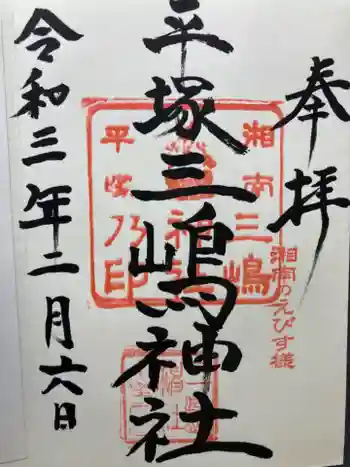 奉拝
湘南のえびす様
平塚三嶋神社
湘南三嶋
平塚乃印
令和三年二月六日